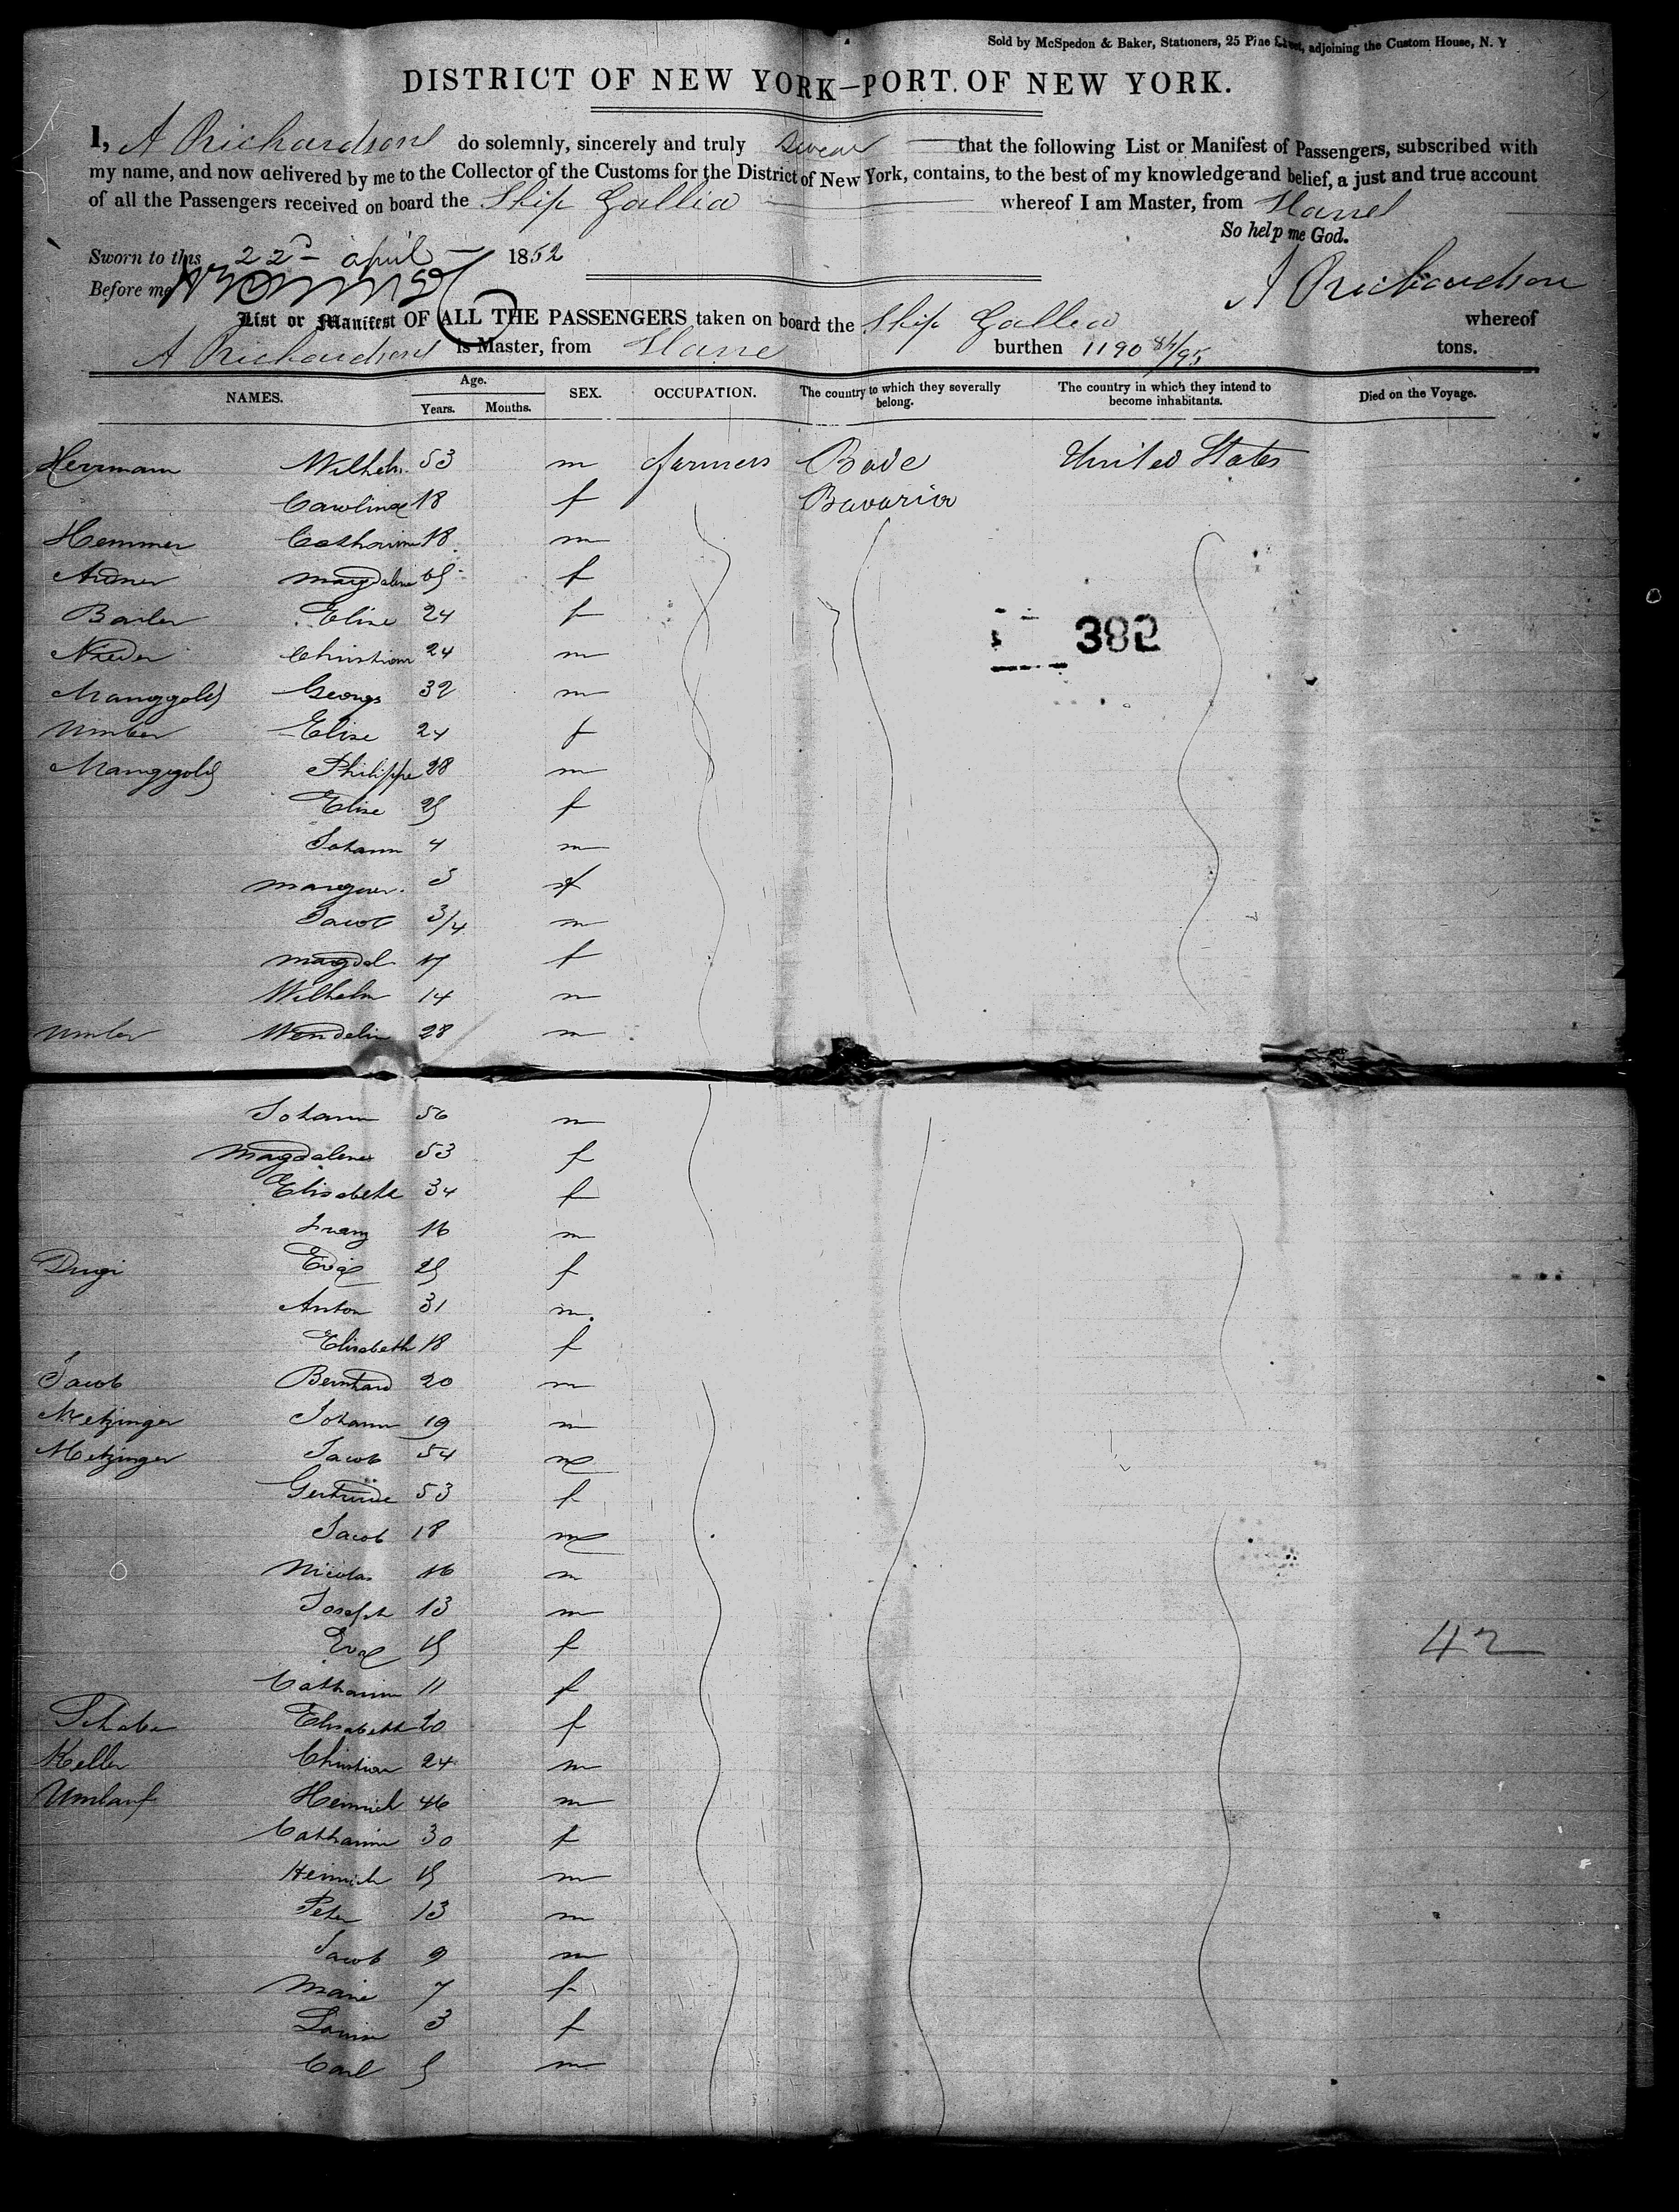 Sold by McSpedon & Baker, Stationers, 25 Pine Street, adjoining the Custom House, N. Y
DISTRICT OF NEW YORK—PORT OF NEW YORK.
I, A Richardson do solemnly, sincerely and truly swear that the following List or Manifest of Passengers, subscribed with
my name, and now delivered by me to the Collector of the Customs for the District of New York, contains, to the best of my knowledge and belief, a just and true account
of all the Passengers received on board the Ship Gallia whereof I am Master, from Havre
So help me God.
Sworn to this 22d april 1852
Before me
A Richardson
List or Manifest OF ALL THE PASSENGERS taken on board the Ship Gallia whereof
A Richardson is Master, from Havre burthen 1190 84/95 tons.
NAMES. Age. Years. Months. SEX. OCCUPATION. The country to which they severally belong. The country in which they intend to become inhabitants. Died on the Voyage.
Herrmann Wilhelm. 53 m farmers Bade United States
Carolina 18 f Bavaria
Hemmer Catharine 18 m
Magdalena 65 f
Elise 24 f
382
Christian 24 m
Manggold George 32 m
Elise 24 f
Manggold Philippe 28 m
Elise 25 f
Johann 4 m
marguer. 3 f
Jacob 3/4 m
magdal 17 f
Wilhelm 14 m
Wendelin 28 m
Johann 56 m
Magdalena 53 f
Elisabeth 34 f
Franz 16 m
Eva 25 f
Anton 31 m.
Elisabeth 18 f
Jacob Bernhard 20 m
Metzinger Johann 19 m
Metzinger Jacob 54 m
Gertrude 53 f
Jacob 18 m
Nicolas 16 m
Joseph 13 m
Eva 15 f
42
Catharine 11 f
Elisabeth 20 f
Keller Christian 24 m
Umlauf Heinrich 46 m
Catharine 30 f
Heinrich 15 m
Peter 13 m
Jacob 9 m
Marie 7 f
Louise 3 f
Carl 5 m